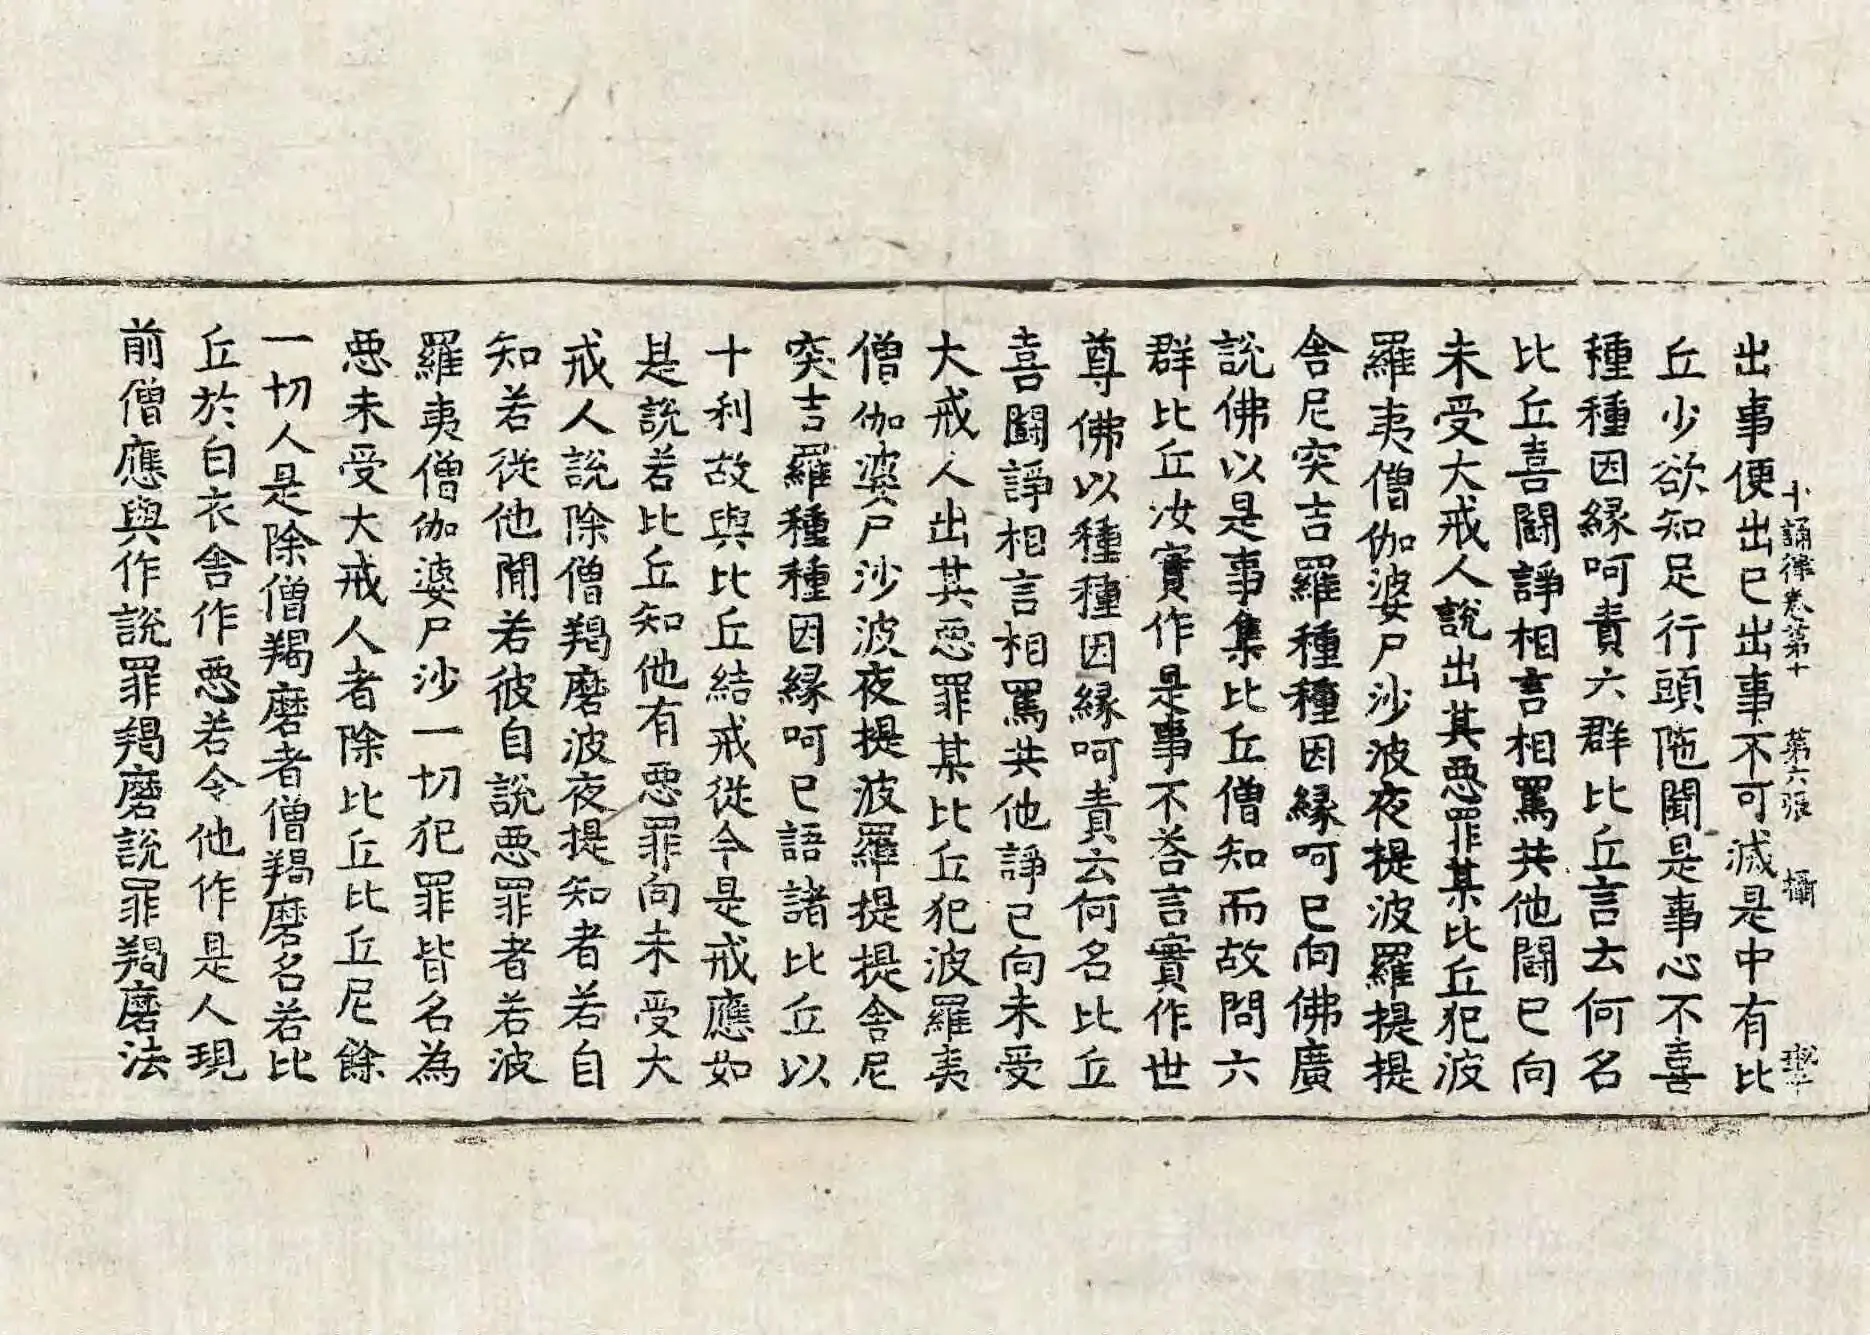 十誦律卷第十 第六張 攝
出事便出已出事不可滅是中有比
丘少欲知足行頭陁聞是事心不喜
種種因緣呵責六群比丘言云何名
比丘喜鬪諍相言相罵共他鬪已向
未受大戒人說出其惡罪某比丘犯波
羅夷僧伽婆尸沙波夜提波羅提提
舍尼突吉羅種種因緣呵已向佛廣
說佛以是事集比丘僧知而故問六
群比丘汝實作是事不荅言實作世
尊佛以種種因緣呵責云何名比丘
喜鬪諍相言相罵共他諍已向未受
大戒人出其惡罪某比丘犯波羅夷
僧伽婆尸沙波夜提波羅提提舍尼
突吉羅種種因緣呵已語諸比丘以
十利故與比丘結戒從今是戒應如
是說若比丘知他有惡罪向未受大
戒人說除僧羯磨波夜提知者若自
知若從他聞若彼自說惡罪者若波
羅夷僧伽婆尸沙一切犯罪皆名為
惡未受大戒人者除比丘比丘尼餘
一切人是除僧羯磨者僧羯磨名若比
丘於白衣舍作惡若令他作是人現
前僧應與作說罪羯磨說罪羯磨法